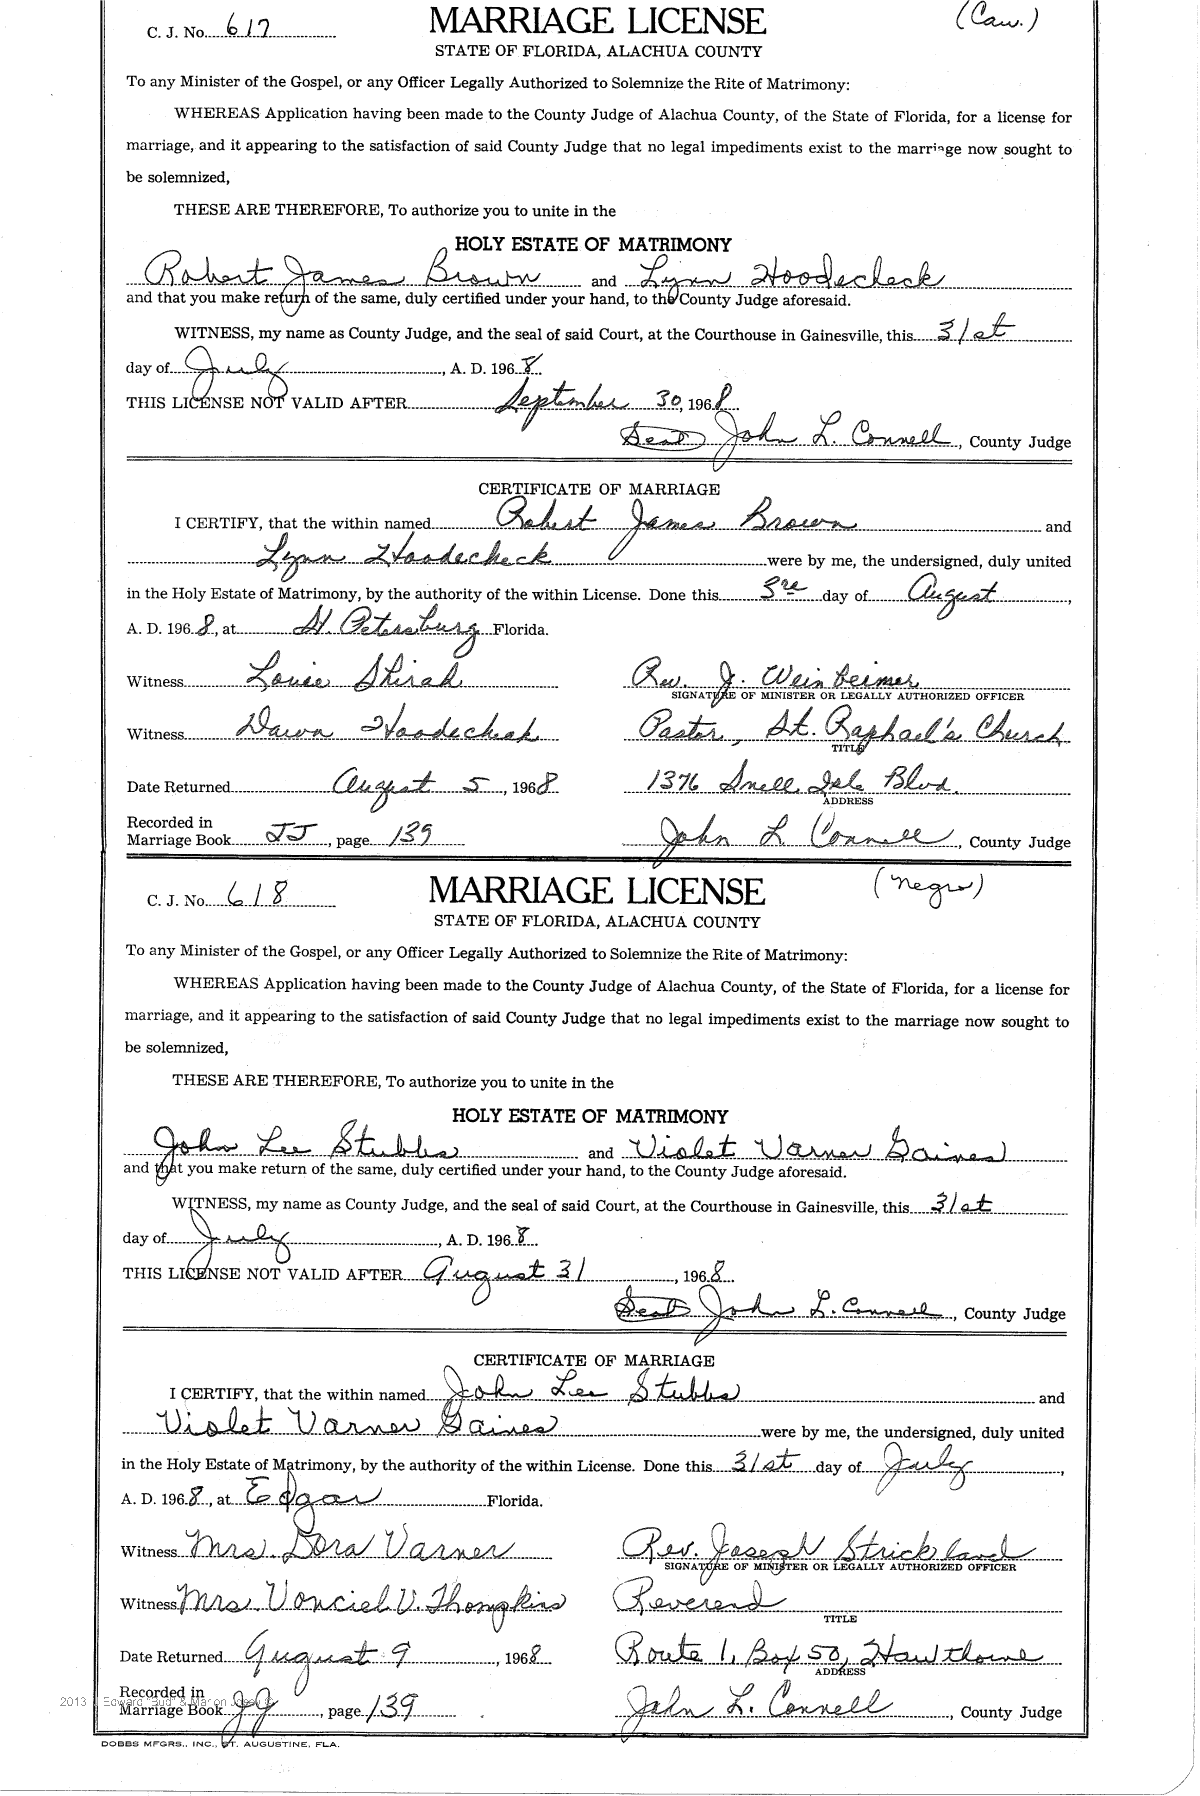 C. J. No. 617 MARRIAGE LICENSE (Cau.)
STATE OF FLORIDA, ALACHUA COUNTY
To any Minister of the Gospel, or any Officer Legally Authorized to Solemnize the Rite of Matrimony:
WHEREAS Application having been made to the County Judge of Alachua County, of the State of Florida, for a license for
marriage, and it appearing to the satisfaction of said County Judge that no legal impediments exist to the marriage now sought to
be solemnized,
THESE ARE THEREFORE, To authorize you to unite in the
HOLY ESTATE OF MATRIMONY
Robert James Brown and Lynn Hoodecheck
and that you make return of the same, duly certified under your hand, to the County Judge aforesaid.
WITNESS, my name as County Judge, and the seal of said Court, at the Courthouse in Gainesville, this 31st
day of July, A. D. 1968
THIS LICENSE NOT VALID AFTER September 30, 1968
Seal John L. Connell, County Judge
CERTIFICATE OF MARRIAGE
I CERTIFY, that the within named Robert James Brown and
Lynn Hoodecheck were by me, the undersigned, duly united
in the Holy Estate of Matrimony, by the authority of the within License. Done this 3rd day of August,
A. D. 1968, at St. Petersburg Florida.
Witness Louie Shirah Rev. J. Weinbeimer
SIGNATURE OF MINISTER OR LEGALLY AUTHORIZED OFFICER
Witness Dawn Hoodecheck Pastor, St. Raphael's Church
TITLE
Date Returned August 5, 1968 1376 Snell Isle Blvd.
ADDRESS
Recorded in
Marriage Book JJ, page 139 John L Connell, County Judge
C. J. No. 618 MARRIAGE LICENSE (negro)
STATE OF FLORIDA, ALACHUA COUNTY
To any Minister of the Gospel, or any Officer Legally Authorized to Solemnize the Rite of Matrimony:
WHEREAS Application having been made to the County Judge of Alachua County, of the State of Florida, for a license for
marriage, and it appearing to the satisfaction of said County Judge that no legal impediments exist to the marriage now sought to
be solemnized,
THESE ARE THEREFORE, To authorize you to unite in the
HOLY ESTATE OF MATRIMONY
John Lee Stubbs and Violet Varner Gaines
and that you make return of the same, duly certified under your hand, to the County Judge aforesaid.
WITNESS, my name as County Judge, and the seal of said Court, at the Courthouse in Gainesville, this 31st
day of July, A. D. 1968
THIS LICENSE NOT VALID AFTER August 31, 1968
Seal John L. Connell, County Judge
CERTIFICATE OF MARRIAGE
I CERTIFY, that the within named John Lee Stubbs and
Violet Varner Gaines were by me, the undersigned, duly united
in the Holy Estate of Matrimony, by the authority of the within License. Done this 31st day of July,
A. D. 1968, at Edgar Florida.
Witness Mrs. Dora Varner Rev. Joseph Strickland
SIGNATURE OF MINISTER OR LEGALLY AUTHORIZED OFFICER
Witness Mrs Vonciel V. Thompkins Reverend
TITLE
Date Returned August 9, 1968 Route 1, Box 50, Hawthorne
ADDRESS
Recorded in
Marriage Book JJ, page 139 John L. Connell, County Judge
2013 Edward "Bud" & Marion
DOBBS MFGRS., INC., ST. AUGUSTINE, FLA.